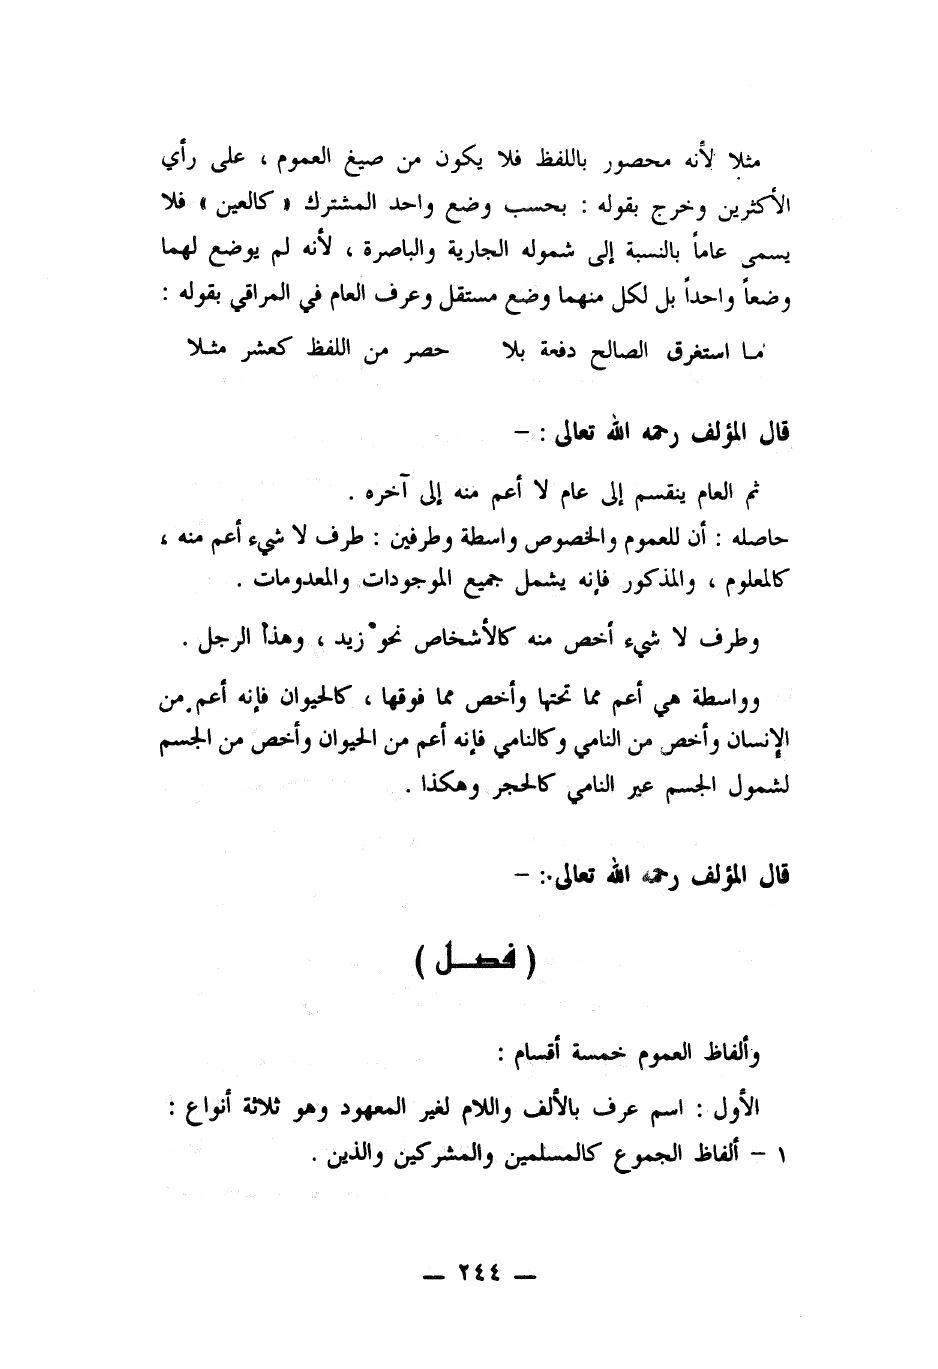 مثلا لأنه محصور باللفظ فلا يكون من صيغ العموم ، على رأي
الأكثرين وخرج بقوله : بحسب وضع واحد المشترك « كالعين » فلا
يسمى عاماً بالنسبة إلى شموله الجارية والباصرة ، لأنه لم يوضع لهما
وضعاً واحداً بل لكل منهما وضع مستقل وعرف العام في المراقي بقوله :
ما استغرق الصالح دفعة بلا حصر من اللفظ كعشر مثلا
قال المؤلف رحمه الله تعالى : –
ثم العام ينقسم إلى عام لا أعم منه إلى آخره .
حاصله : أن للعموم والخصوص واسطة وطرفين : طرف لا شيء أعم منه ،
كالمعلوم ، والمذكور فإنه يشمل جميع الموجودات والمعدومات .
وطرف لا شيء أخص منه كالأشخاص نحو زيد ، وهذا الرجل .
وواسطة هي أعم مما تحتها وأخص مما فوقها ، كالحيوان فإنه أعم من
الإنسان وأخص من النامي وكالنامي فإنه أعم من الحيوان وأخص من الجسم
لشمول الجسم عير النامي كالحجر وهكذا .
قال المؤلف رحمه الله تعالى : –
( فصل )
وألفاظ العموم خمسة أقسام :
الأول : اسم عرف بالألف واللام لغير المعهود وهو ثلاثة أنواع :
١ – ألفاظ الجموع كالمسلمين والمشركين والذين .
— ٢٤٤ —